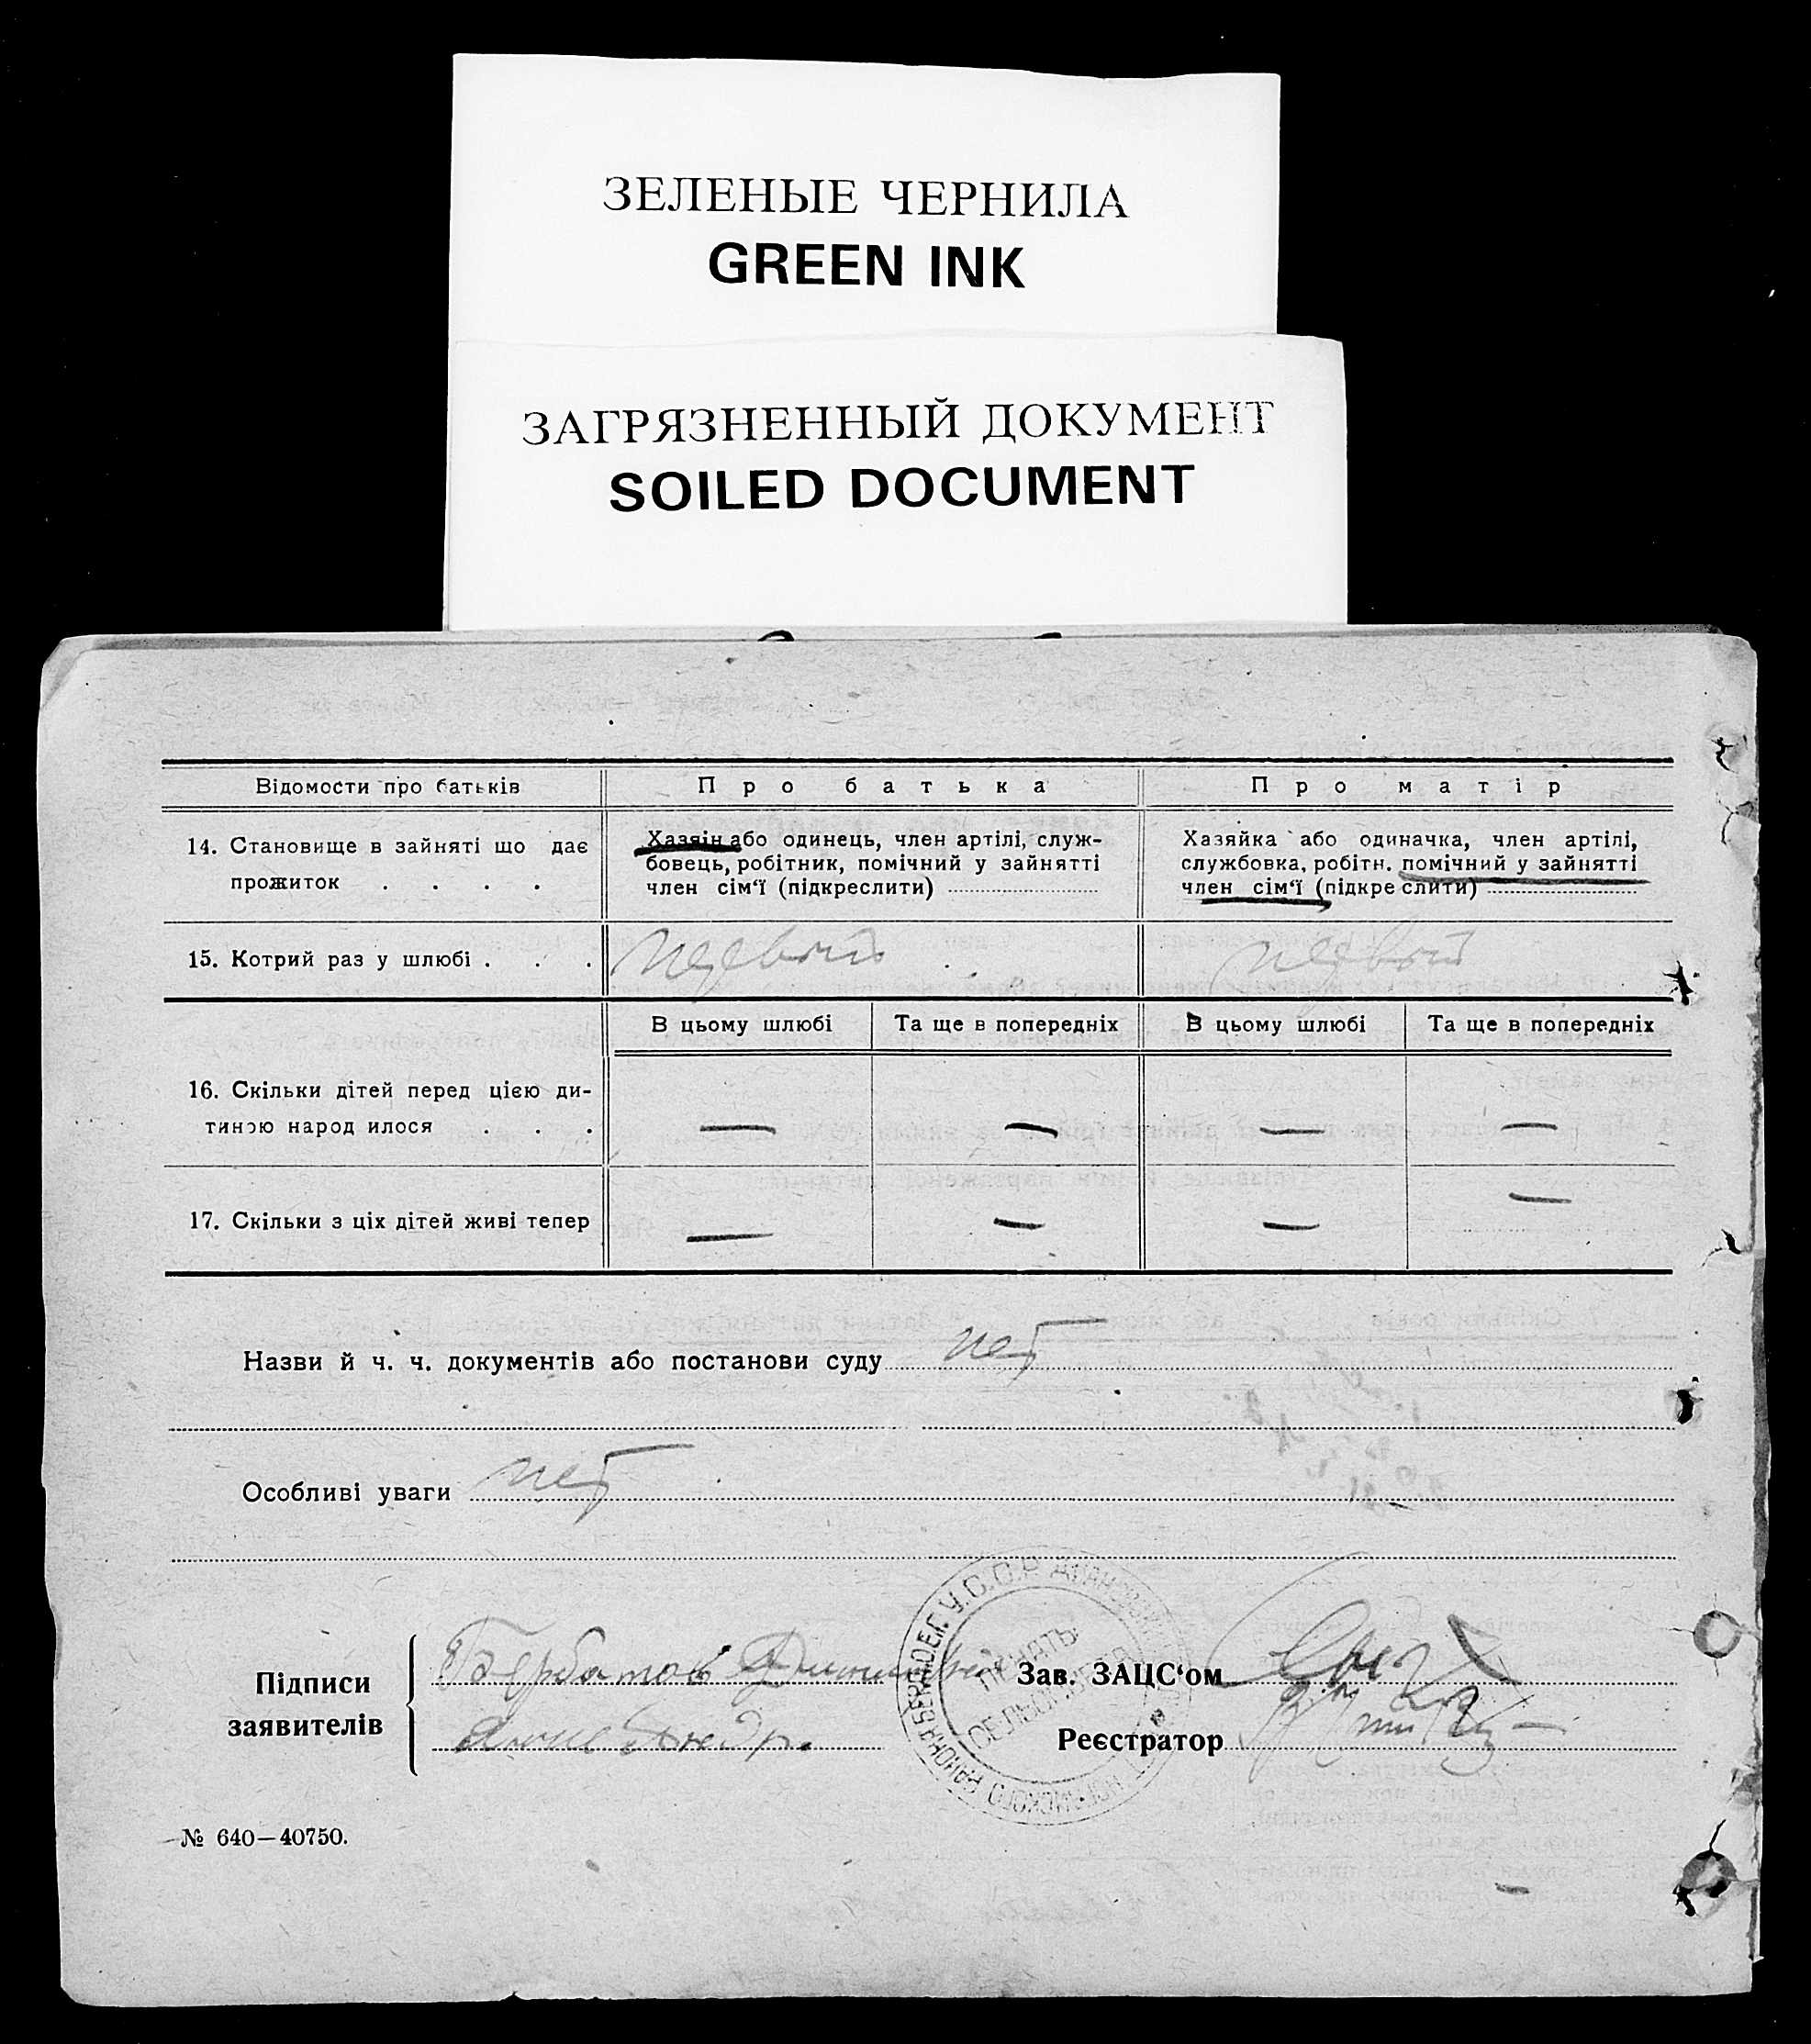 ЗЕЛЕНЫЕ ЧЕРНИЛА
GREEN INK
ЗАГРЯЗНЕННЫЙ ДОКУМЕНТ
SOILED DOCUMENT
Відомости про батьків
Про батька
Про матір
14. Становище в зайняті що дає
прожиток . . . .
Хазяін або одинець, член артілі, служ-
бовець, робітник, помічний у зайнятті
член сім‘ї (підкреслити)
Хазяйка або одиначка, член артілі,
службовка, робітн. помічний у зайнятті
член сім‘ї (підкреслити)
15. Котрий раз у шлюбі . . .
первый
первый
В цьому шлюбі
Та ще в попередніх
В цьому шлюбі
Та ще в попередніх
16. Скільки дітей перед цією ди-
тиною народ илося . . .
— — — —
17. Скільки з ціх дітей живі тепер
— — — —
Назви й ч. ч. документів або постанови суду нет
Особливі уваги нет
Підписи
заявителів
Бербатов
Зав. ЗАЦС‘ом
Реєстратор
У.С.С.Р.
ПЕЧАТЬ
СЕЛЬСОВЕТА
РАЙОНА
№ 640—40750.